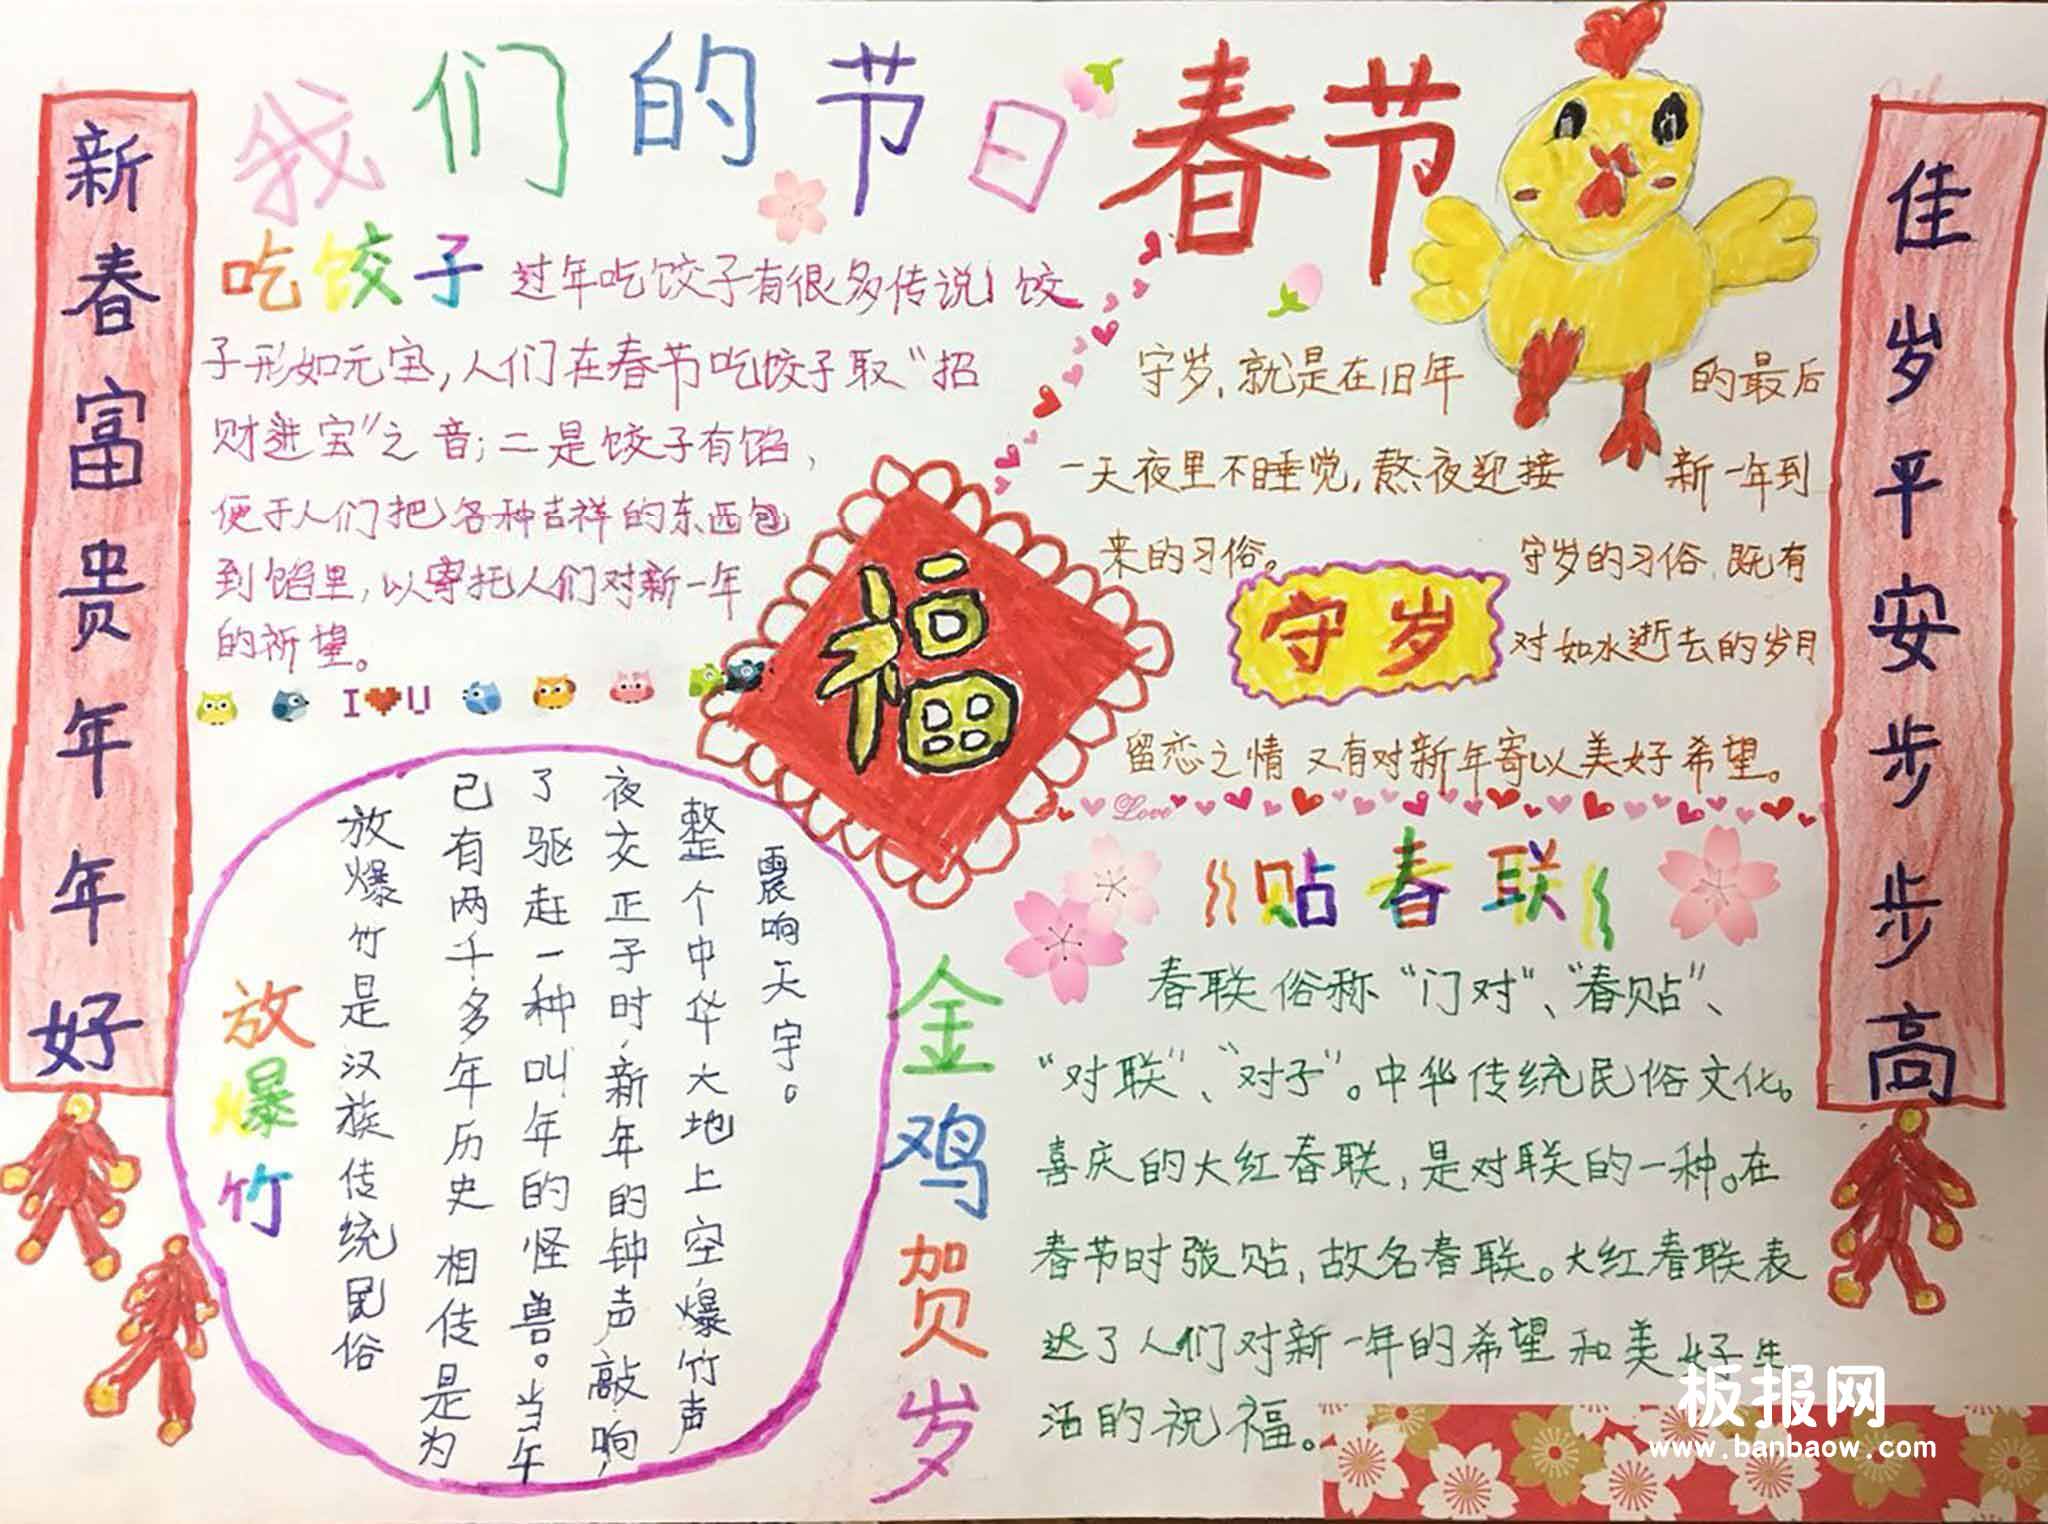 我们的节日春节
新春富贵年年好
佳岁平安步步高
吃饺子
过年吃饺子有很多传说,饺
子形如元宝,人们在春节吃饺子取“招
财进宝”之音;二是饺子有馅,
便于人们把各种吉祥的东西包
到馅里,以寄托人们对新一年
的祈望。
I U
福
守岁,就是在旧年的最后
一天夜里不睡觉,熬夜迎接新一年到
来的习俗。守岁的习俗,既有
守岁
对如水逝去的岁月
留恋之情又有对新年寄以美好希望。
Love
放爆竹
放爆竹是汉族传统民俗
已有两千多年历史相传是为
了驱赶一种叫年的怪兽。当午
夜交正子时,新年的钟声敲响,
整个中华大地上空爆竹声
震响天宇。
金鸡贺岁
贴春联
春联俗称“门对”、“春贴”、
“对联”、“对子”。中华传统民俗文化。
喜庆的大红春联,是对联的一种。在
春节时张贴,故名春联。大红春联表
达了人们对新一年的希望和美好生
活的祝福。
板报网
www.banbaow.com